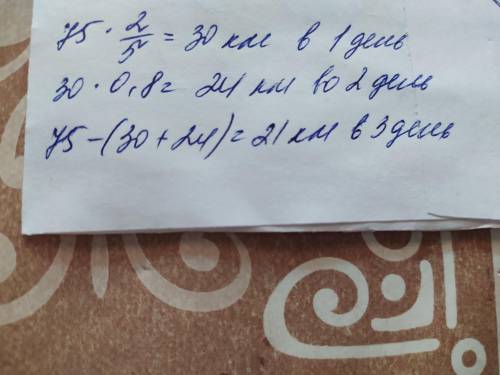 75 · 2/5 = 30 км в 1 день
30 · 0,8 = 24 км во 2 день
75 - (30 + 24) = 21 км в 3 день